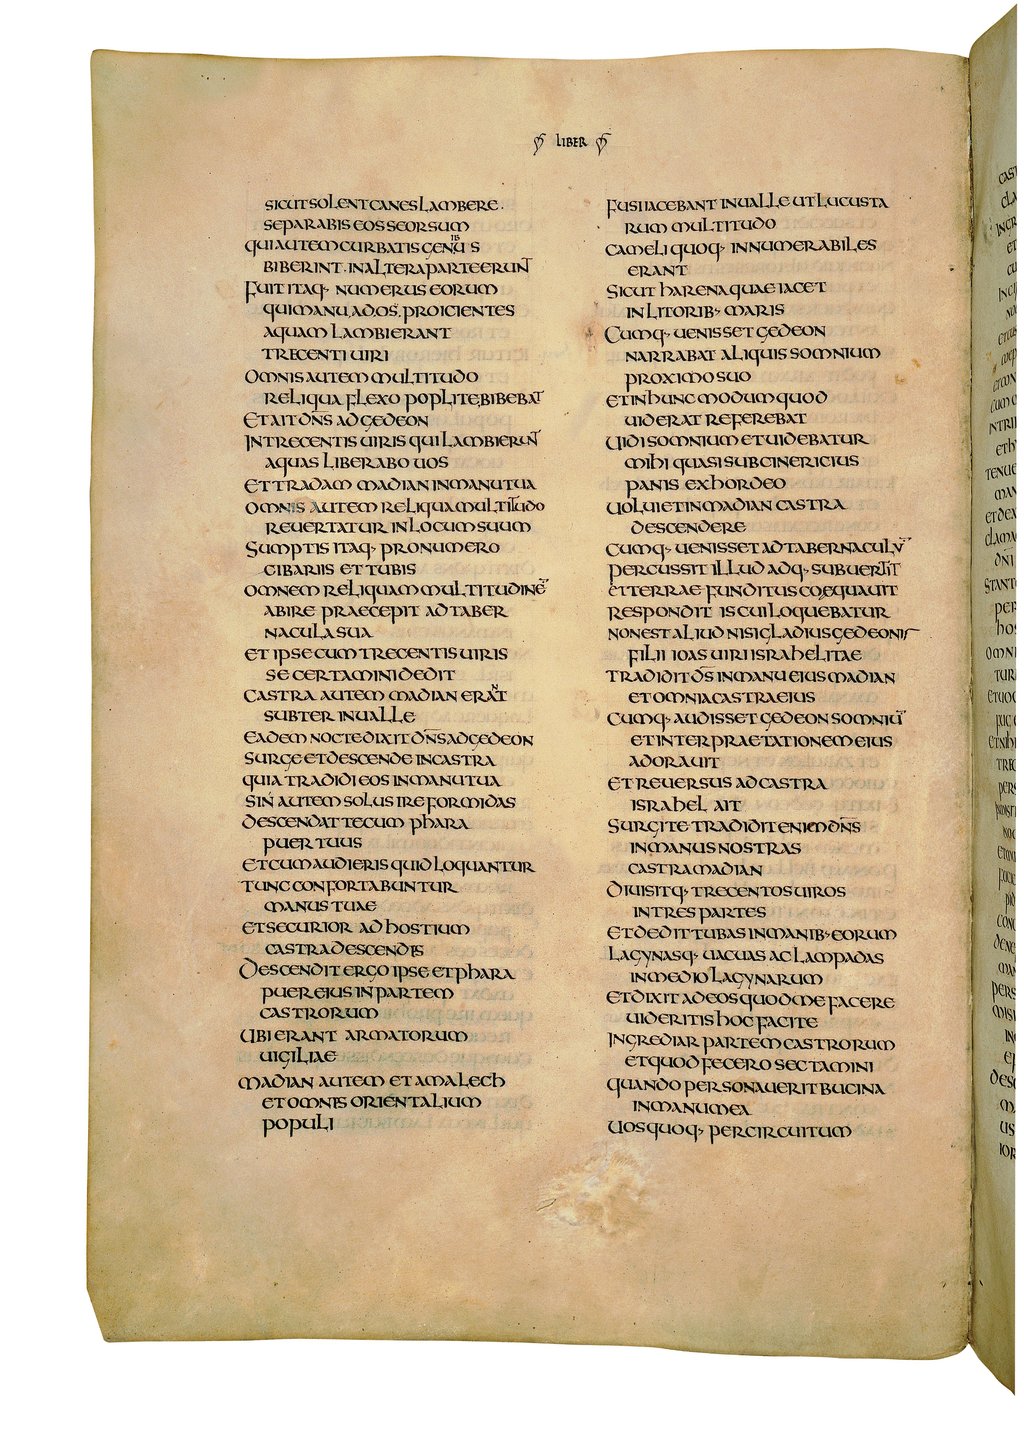 LIBER
SICUT SOLENT CANES LAMBERE ·
SEPARABIS EOS SEORSUM
QUI AUTEM CURBATIS GENIBUS
BIBERINT · IN ALTERA PARTE ERUNT̅
FUIT ITAQ· NUMERUS EORUM
QUI MANU, AD OS, PROICIENTES
AQUAM LAMBIERANT
TRECENTI UIRI
OMNIS AUTEM MULTITUDO
RELIQUA FLEXO POPLITE, BIBEBAT
ET AIT DN̅S AD GEDEON
IN TRECENTIS UIRIS QUI LAMBIERUNT̅
AQUAS LIBERABO UOS
ET TRADAM MADIAN IN MANU TUA
OMNIS AUTEM RELIQUA MULTITUDO
REUERTATUR IN LOCUM SUUM
SUMPTIS ITAQ· PRO NUMERO
CIBARIIS ET TUBIS
OMNEM RELIQUAM MULTITUDINE̅
ABIRE PRAECEPIT AD TABER
NACULA SUA
ET IPSE CUM TRECENTIS UIRIS
SE CERTAMINI DEDIT
CASTRA AUTEM MADIAN ERANT
SUBTER IN UALLE
EADEM NOCTE DIXIT DN̅S AD GEDEON
SURGE ET DESCENDE IN CASTRA
QUIA TRADIDI EOS IN MANU TUA
SIN AUTEM SOLUS IRE FORMIDAS
DESCENDAT TECUM PHARA
PUER TUUS
ET CUM AUDIERIS QUID LOQUANTUR
TUNC CONFORTABUNTUR
MANUS TUAE
ET SECURIOR AD HOSTIUM
CASTRA DESCENDIS
DESCENDIT ERGO IPSE ET PHARA
PUER EIUS IN PARTEM
CASTRORUM
UBI ERANT ARMATORUM
UIGILIAE
MADIAN AUTEM ET AMALECH
ET OMNIS ORIENTALIUM
POPULI
FUSI IACEBANT IN UALLE UT LUCUSTA
RUM MULTITUDO
CAMELI QUOQ· INNUMERABILES
ERANT
SICUT HARENA QUAE IACET
IN LITORIB· MARIS
CUMQ· UENISSET GEDEON
NARRABAT ALIQUIS SOMNIUM
PROXIMO SUO
ET IN HUNC MODUM QUOD
UIDERAT REFEREBAT
UIDI SOMNIUM ET UIDEBATUR
MIHI QUASI SUBCINERICIUS
PANIS EX HORDEO
UOLUI ET IN MADIAN CASTRA
DESCENDERE
CUMQ· UENISSET AD TABERNACULU̅
PERCUSSIT ILLUD ADQ· SUBUERTIT
ET TERRAE FUNDITUS COEQUAUIT
RESPONDIT IS CUI LOQUEBATUR
NON EST ALIUD NISI GLADIUS GEDEONIS
FILII IOAS UIRI ISRAHELITAE
TRADIDIT D̅S IN MANU EIUS MADIAN
ET OMNIA CASTRA EIUS
CUMQ· AUDISSET GEDEON SOMNIU̅
ET INTERPRAETATIONEM EIUS
ADORAUIT
ET REUERSUS AD CASTRA
ISRAHEL AIT
SURGITE TRADIDIT ENIM DN̅S
IN MANUS NOSTRAS
CASTRA MADIAN
DIUISITQ· TRECENTOS UIROS
IN TRES PARTES
ET DEDIT TUBAS IN MANIB· EORUM
LAGYNASQ· UACUAS AC LAMPADAS
IN MEDIO LAGYNARUM
ET DIXIT AD EOS QUOD ME FACERE
UIDERITIS HOC FACITE
INGREDIAR PARTEM CASTRORUM
ET QUOD FECERO SECTAMINI
QUANDO PERSONAUERIT BUCINA
IN MANU MEA
UOS QUOQ· PER CIRCUITUM